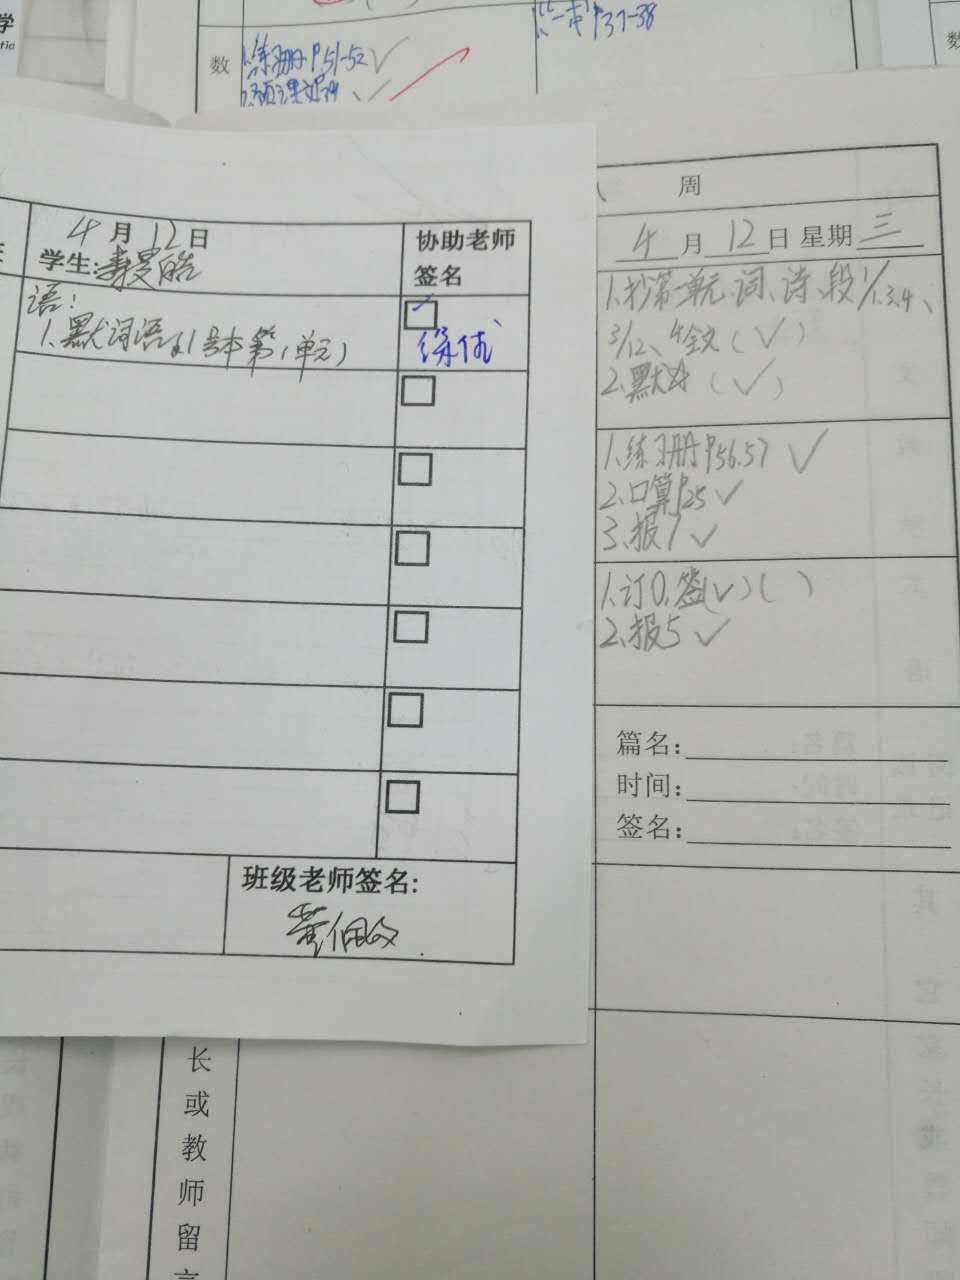 学
数
1.练习册P51-52
P37-38
数
周
4月12日
学生:
协助老师
签名
语:
1.默词语
第1单元)
4月12日 星期三
1.抄第一单元.词、诗、段1/1.3.4、
3/12、4全文(✓)
2.默(✓)
1.练习册P56.57 ✓
2.口算P25 ✓
3.报1 ✓
1.订0.签(✓)( )
2.报5 ✓
篇名:
时间:
签名:
班级老师签名:
长
或
教
师
留
言